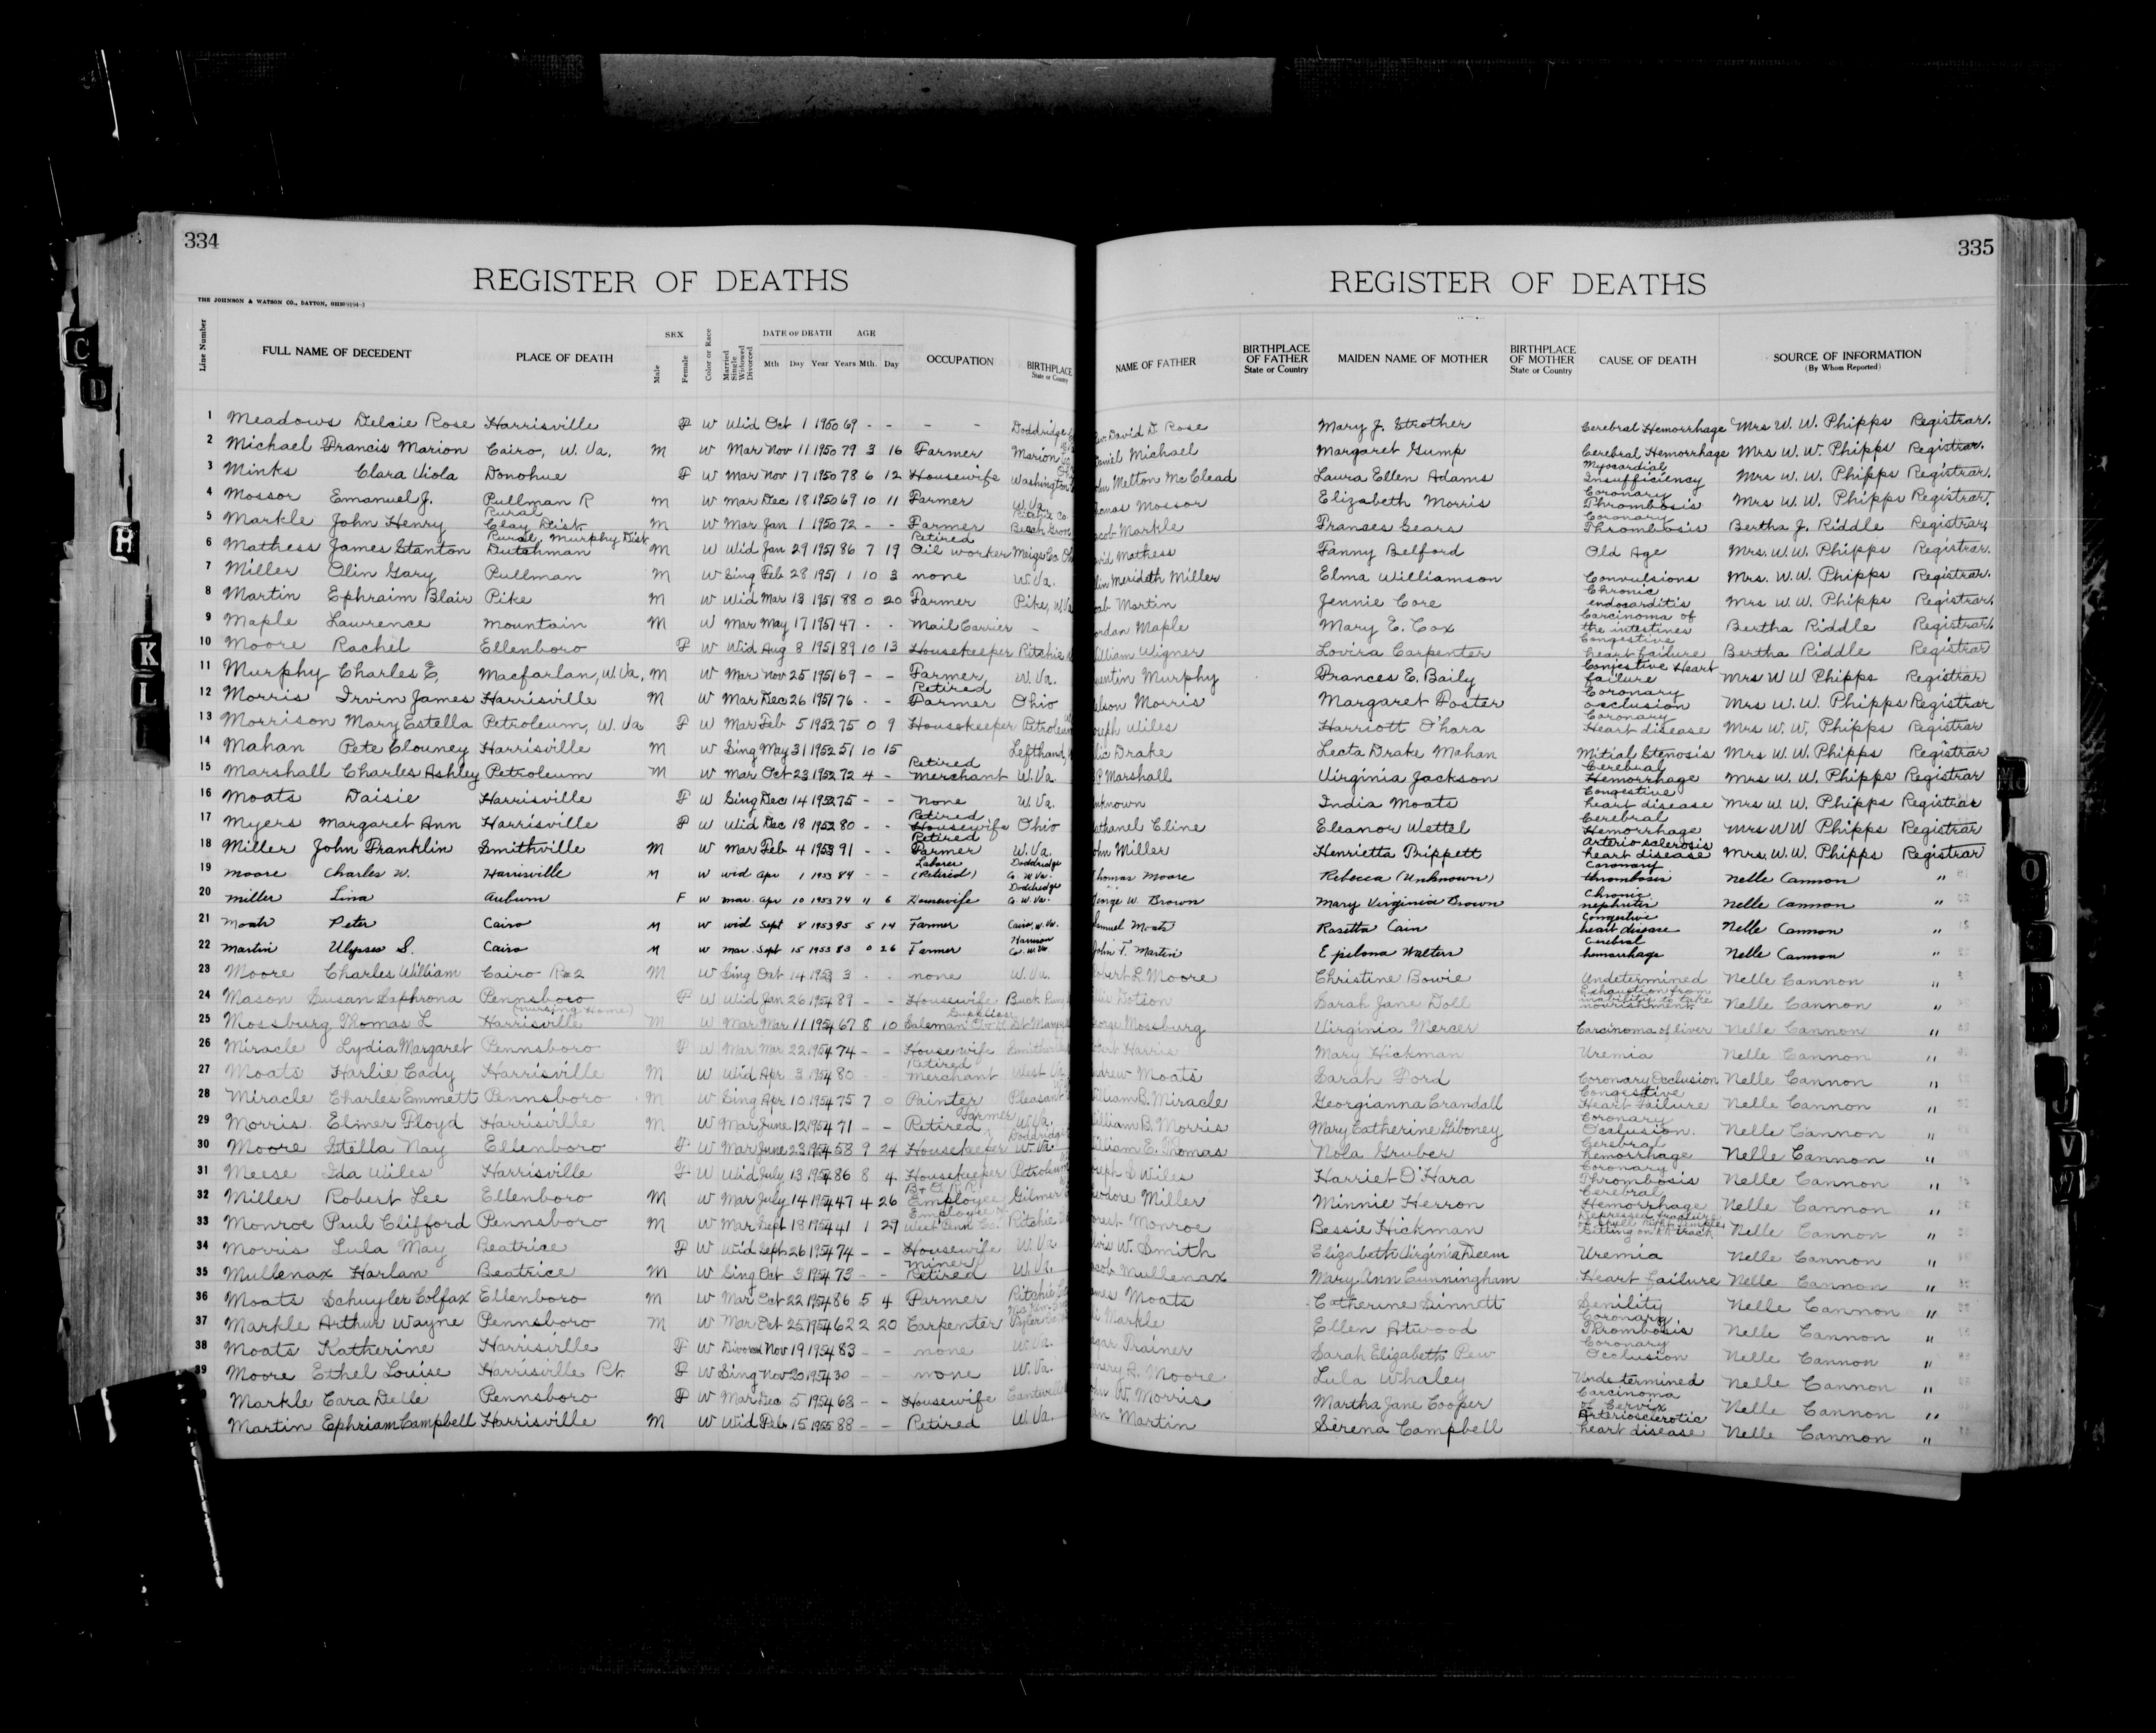 334
REGISTER OF DEATHS
THE JOHNSON & WATSON CO., DAYTON, OHIO 9194-3
Line Number FULL NAME OF DECEDENT PLACE OF DEATH SEX Male Female Color or Race Married Single Widowed Divorced DATE OF DEATH Mth Day Year AGE Years Mth. Day OCCUPATION BIRTHPLACE State or Country
1 Meadows Delcie Rose Harrisville F W Wid Oct 1 1950 69 - - - - Doddridge
2 Michael Francis Marion Cairo, W. Va. M W Mar Nov 11 1950 79 3 16 Farmer Marion
3 Minks Clara Viola Donohue F W Mar Nov 17 1950 78 6 12 Housewife Washington
4 Mossor Emanuel J. Pullman R M W Mar Dec 18 1950 69 10 11 Farmer W. Va.
5 Markle John Henry Rural Clay Dist. M W Mar Jan 1 1950 72 - - Farmer Ritchie Co Beech Grove
6 Mathess James Stanton Rural, Murphy Dist Dutchman M W Wid Jan 29 1951 86 7 19 Retired Oil worker Meigs Co. Oh
7 Miller Olin Gary Pullman M W Sing Feb 28 1951 1 10 3 none W. Va.
8 Martin Ephraim Blair Pike M W Wid Mar 13 1951 88 0 20 Farmer Pike, W. Va
9 Maple Lawrence Mountain M W Mar May 17 1951 47 - - Mail Carrier -
10 Moore Rachel Ellenboro F W Wid Aug 8 1951 89 10 13 Housekeeper Ritchie
11 Murphy Charles E. Macfarlan, W. Va. M W Mar Nov 25 1951 69 - - Farmer W. Va.
12 Morris Irvin James Harrisville M W Mar Dec 26 1951 76 - - Retired Farmer Ohio
13 Morrison Mary Estella Petroleum, W. Va F W Mar Feb 5 1952 75 0 9 Housekeeper Petroleum
14 Mahan Pete Clouney Harrisville M W Sing May 31 1952 51 10 15 Lefthand,
15 Marshall Charles Ashley Petroleum M W Mar Oct 23 1952 72 4 - Retired Merchant W. Va.
16 Moats Daisie Harrisville F W Sing Dec 14 1952 75 - - None W. Va.
17 Myers Margaret Ann Harrisville F W Wid Dec 18 1952 80 - - Retired Housewife Ohio
18 Miller John Franklin Smithville M W Mar Feb 4 1953 91 - - Retired Farmer W. Va.
19 Moore Charles W. Harrisville M W Wid Apr 1 1953 84 - - Laborer (Retired) Doddridge Co. W. Va.
20 Miller Lina Auburn F W Mar. Apr 10 1953 74 11 6 Housewife Doddridge Co. W. Va.
21 Moats Peter Cairo M W Wid Sept 8 1953 95 5 14 Farmer Cairo, W. Va.
22 Martin Ulysses S. Cairo M W Mar. Sept 15 1953 83 0 26 Farmer Harrison Co. W. Va
23 Moore Charles William Cairo R#2 M W Sing Oct 14 1953 3 - - none W. Va.
24 Mason Susan Saphrona Pennsboro (Nursing Home) F W Wid Jan 26 1954 89 - - Housewife Buck Run,
25 Mossburg Thomas L Harrisville M W Mar Mar 11 1954 67 8 10 Saleman Supplies St. Marys
26 Miracle Lydia Margaret Pennsboro F W Mar Mar 22 1954 74 - - Housewife Smithville
27 Moats Harlie Cady Harrisville M W Wid Apr 3 1954 80 - - Retired Merchant West Va
28 Miracle Charles Emmett Pennsboro M W Sing Apr 10 1954 75 7 0 Painter Pleasant
29 Morris Elmer Floyd Harrisville M W Mar June 12 1954 71 - - Retired Farmer W. Va.
30 Moore Stella Nay Ellenboro F W Mar June 23 1954 58 9 24 Housekeeper Doddridge W. Va.
31 Meese Ida Wiles Harrisville F W Wid July 13 1954 86 8 4 Housekeeper Petroleum
32 Miller Robert Lee Ellenboro M W Mar July 14 1954 47 4 26 B & O R.R. Employee Gilmer
33 Monroe Paul Clifford Pennsboro M W Mar Sept 18 1954 41 1 29 Employee of West Penn Co. Ritchie
34 Morris Lula May Beatrice F W Wid Sept 26 1954 74 - - Housewife W. Va
35 Mullenax Harlan Beatrice M W Sing Oct 3 1954 73 - - Miner Retired W. Va.
36 Moats Schuyler Colfax Ellenboro M W Mar Oct 22 1954 86 5 4 Farmer Ritchie Co
37 Markle Arthur Wayne Pennsboro M W Mar Oct 25 1954 62 2 20 Carpenter Tyler
38 Moats Katherine Harrisville F W Divorced Nov 19 1954 83 - - none W. Va.
39 Moore Ethel Louise Harrisville Rt. F W Sing Nov 20 1954 30 - - none W. Va.
Markle Cara Delle Pennsboro F W Mar Dec 5 1954 63 - - Housewife Cantwell
Martin Ephriam Campbell Harrisville M W Wid Feb 15 1955 88 - - Retired W. Va.
335
REGISTER OF DEATHS
NAME OF FATHER BIRTHPLACE OF FATHER State or Country MAIDEN NAME OF MOTHER BIRTHPLACE OF MOTHER State or Country CAUSE OF DEATH SOURCE OF INFORMATION (By Whom Reported)
David D. Rose Mary J. Strother Cerebral Hemorrhage Mrs W. W. Phipps Registrar.
Daniel Michael Margaret Gump Cerebral Hemorrhage Mrs W. W. Phipps Registrar.
John Melton McClead Laura Ellen Adams Myocardial Insufficiency Mrs W. W. Phipps Registrar.
homas Mossor Elizabeth Morris Coronary Thrombosis Mrs W. W. Phipps Registrar.
acob Markle Frances Gears Coronary Thrombosis Bertha J. Riddle Registrar,
avid Mathess Fanny Belford Old Age Mrs. W. W. Phipps Registrar.
lin Merideth Miller Elma Williamson Convulsions Mrs. W. W. Phipps Registrar.
ab Martin Jennie Core Chronic endocarditis Mrs W. W. Phipps Registrar.
ordan Maple Mary E. Cox Carcinoma of the intestines Bertha Riddle Registrar.
illiam Wigner Lovira Carpenter Congestive heart failure Bertha Riddle Registrar
uentin Murphy Frances E. Baily Conjestive Heart failure Mrs W W Phipps Registrar
elson Morris Margaret Foster Coronary occlusion Mrs W. W. Phipps Registrar
oseph Wiles Harriott O'hara Coronary Heart disease Mrs W. W. Phipps Registrar
lic Drake Lecta Drake Mahan Mitial Stenosis Mrs W. W. Phipps Registrar
P. Marshall Virginia Jackson Cerebral Hemorrhage Mrs W. W. Phipps Registrar
nknown India Moats Congestive heart disease Mrs W. W. Phipps Registrar
athanel Cline Eleanor Wettel Cerebral Hemorrhage Mrs W W Phipps Registrar
ohn Miller Henrietta Prippett Arterio sclerosis heart disease Mrs. W. W. Phipps Registrar
Thomas Moore Rebecca (Unknown) Coronary thrombosis Nelle Cannon "
George W. Brown Mary Virginia Brown Chronic nephritis Nelle Cannon "
Samuel Moats Rosetta Cain Congestive heart disease Nelle Cannon "
John T. Martin Epilona Walters Cerebral hemorrhage Nelle Cannon "
obert L. Moore Christine Bowie Undetermined Nelle Cannon "
llis Cotion Sarah Jane Doll Exhaustion from inability to take nourishment. Nelle Cannon "
eorge Mossburg Virginia Mercer Carcinoma of liver Nelle Cannon "
Harris Mary Hickman Uremia Nelle Cannon "
ndrew Moats Sarah Ford Coronary Occlusion Nelle Cannon "
illiam B. Miracle Georgianna Crandall Congestive Heart Failure Nelle Cannon "
illiam B. Morris Mary Catherine Giboney Coronary Occlusion. Nelle Cannon "
illiam E. Thomas Nola Gruber Cerebral hemorrhage Nelle Cannon "
oseph S Wiles Harriet O'Hara Coronary Thrombosis Nelle Cannon "
eodore Miller Minnie Herron Cerebral Hemorrhage Nelle Cannon "
orest Monroe Bessie Hickman Depressed fracture of skull Right temple Sitting on RR track Nelle Cannon "
lvis W. Smith Elizabeth Virginia Deem Uremia Nelle Cannon "
acob Mullenax Mary Ann Cunningham Heart failure Nelle Cannon "
ames Moats Catherine Sinnett Senility Nelle Cannon "
li Markle Ellen Atwood Coronary Thrombosis Nelle Cannon "
gar Trainer Sarah Elizabeth Pew Coronary Occlusion Nelle Cannon "
mery R. Moore Lula Whaley Undetermined Nelle Cannon "
ohn W. Morris Martha Jane Cooper Carcinoma of Cervix Nelle Cannon "
an Martin Serena Campbell Arteriosclerotic heart disease Nelle Cannon "
C
D
H
K
L
M
O
V